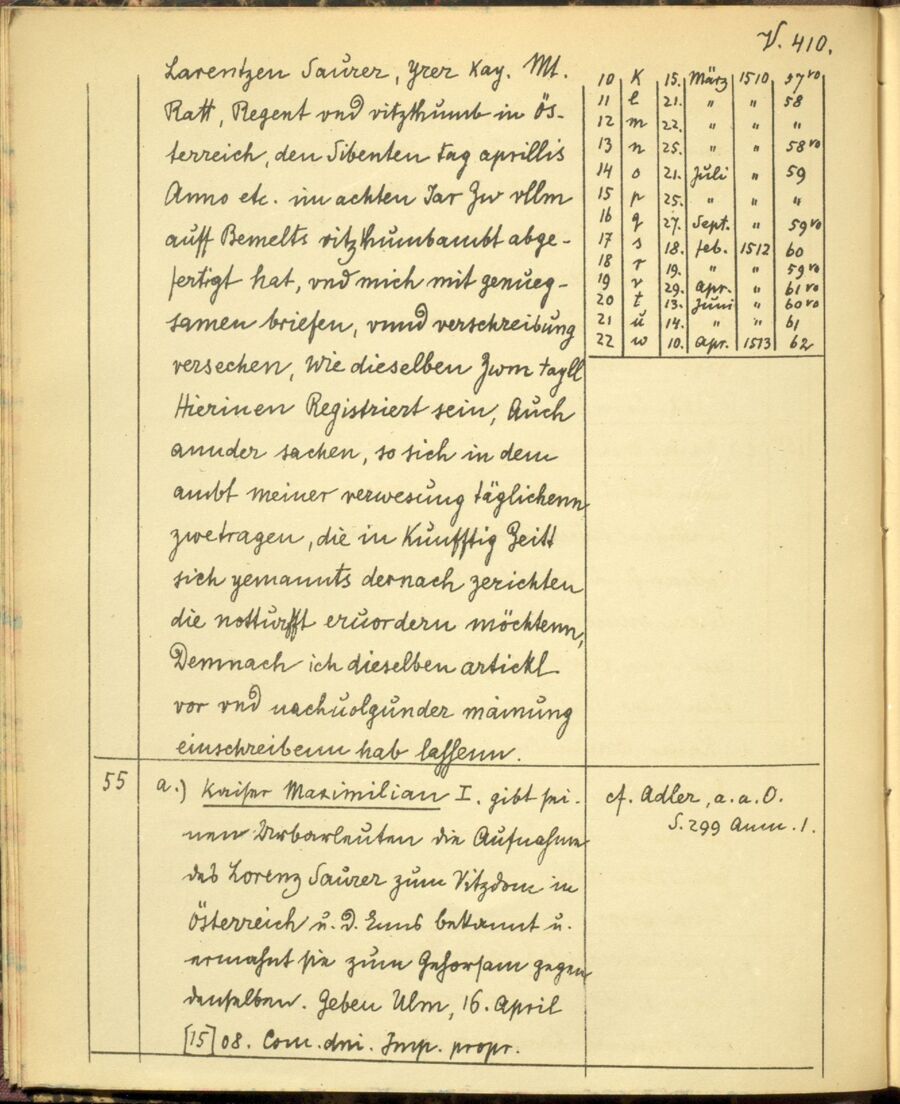 V. 410.
Larentzen Saurer, yrer Kay. Mt.
Ratt, Regent vnd vitzthumb in Ös-
terreich, den Sibenten tag aprillis
Anno etc. im achten Jar Zw vllm
auff Bemelts vitzthumbambt abge-
fertigt hat, vnd mich mit genueg-
samen briefen, vnnd verschreibung
versechen, wie dieselben Zwm tayll
Hierinen Registriert sein, Auch
annder sachen, so sich in dem
ambt meiner verwesung täglichenn
zwetragen, die in Kunfftig Zeitt
sich yemannts dernach zerichten
die notturfft eruordern möchtenn,
Demnach ich dieselben artickl
vor vnd nachuolgunder mainung
einschreibenn hab lassenn.
10 k 15. März 1510 57vo
11 l 21. " " 58
12 m 22. " " "
13 n 25. " " 58vo
14 o 21. Juli " 59
15 p 25. " " "
16 q 27. Sept. " 59vo
17 s 18. feb. 1512 60
18 r 19. " " 59vo
19 v 29. apr. " 61vo
20 t 13. Juni " 60vo
21 u 14. " " 61
22 w 10. apr. 1513 62
55 a.) Kaiser Maximilian I. gibt sei-
nen Urbarleuten die Aufnahme
des Lorenz Saurer zum Vitzdom in
Österreich u. d. Enns bekannt u.
ermahnt sie zum Gehorsam gegen
denselben. Geben Ulm, 16. April
[15]08. Com. dni. Imp. propr.
cf. Adler, a.a.O.
S. 299 Anm. 1.